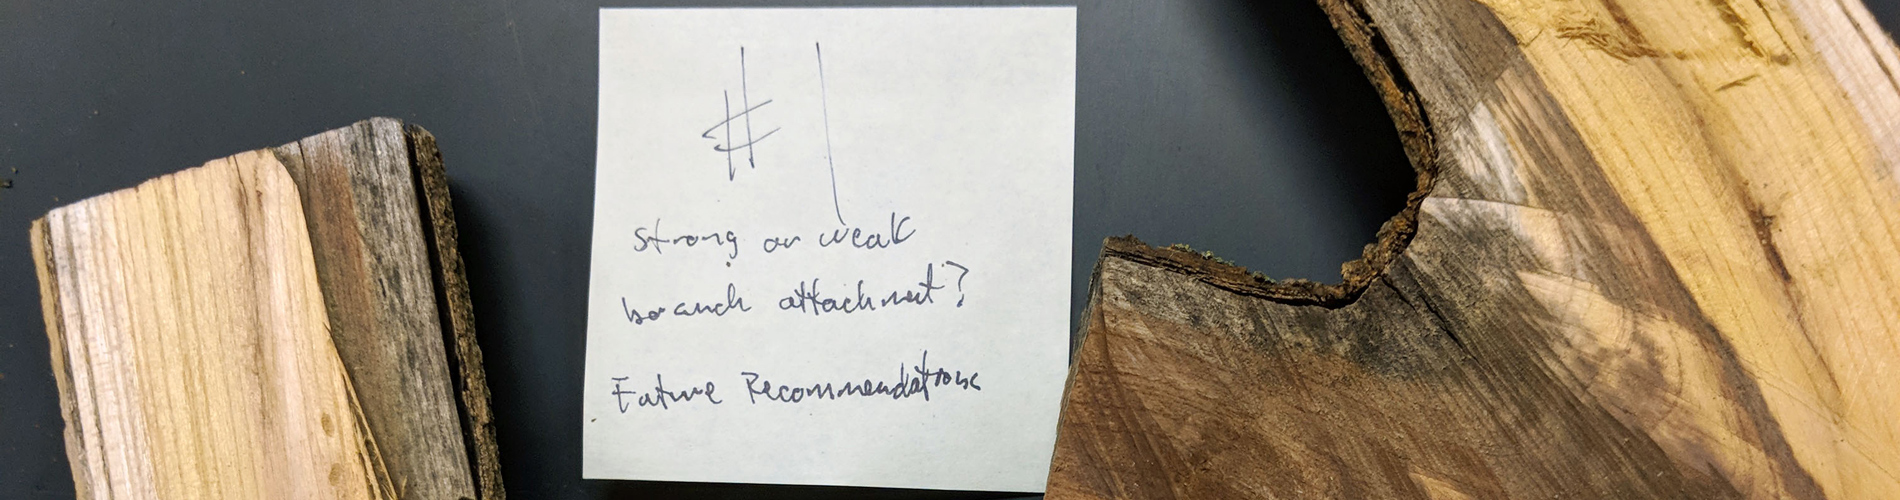 #1
strong or weak
branch attachment?
Future Recommendations